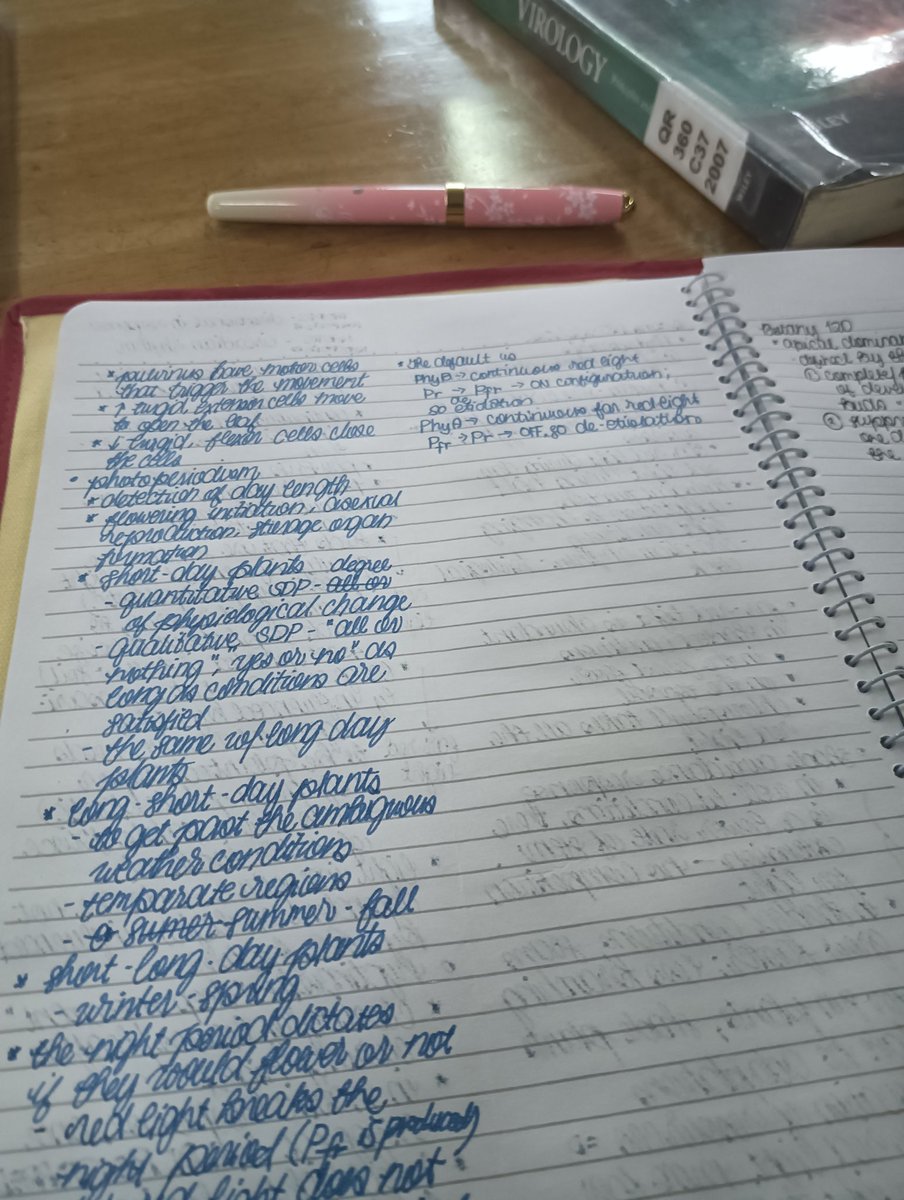 VIROLOGY
QR
360
C37
2007
WILEY
* pulvinus have motor cells
that trigger the movement
* ↑ turgid extensor cells move
to open the leaf
* ↓ turgid, flexor cells close
the cells
• photoperiodism
* detection of day length
* flowering initiation, asexual
reproduction, storage organ
formation
* short-day plants degree
- quantitative SDP - all or
of physiological change
- qualitative SDP - "all or
nothing", "yes or no" as
long as conditions are
satisfied
- the same w/ long day
plants
* long-short-day plants
- to get past the ambiguous
weather conditions
- temparate regions
- sumer summer-fall
* short-long-day plants
- winter-spring
* the night period dictates
if they would flower or not
- red light breaks the
night period (Pfr is produced)
light does not
* the default is
PhyB → continuous red light
Pr → Pfr → ON configuration;
so de etiolation
PhyA → continuous far red light
Pfr → Pr → OFF. so de-etiolation
Botany 120
* apical dominan
① complete
of deve
buds
②
are d
the